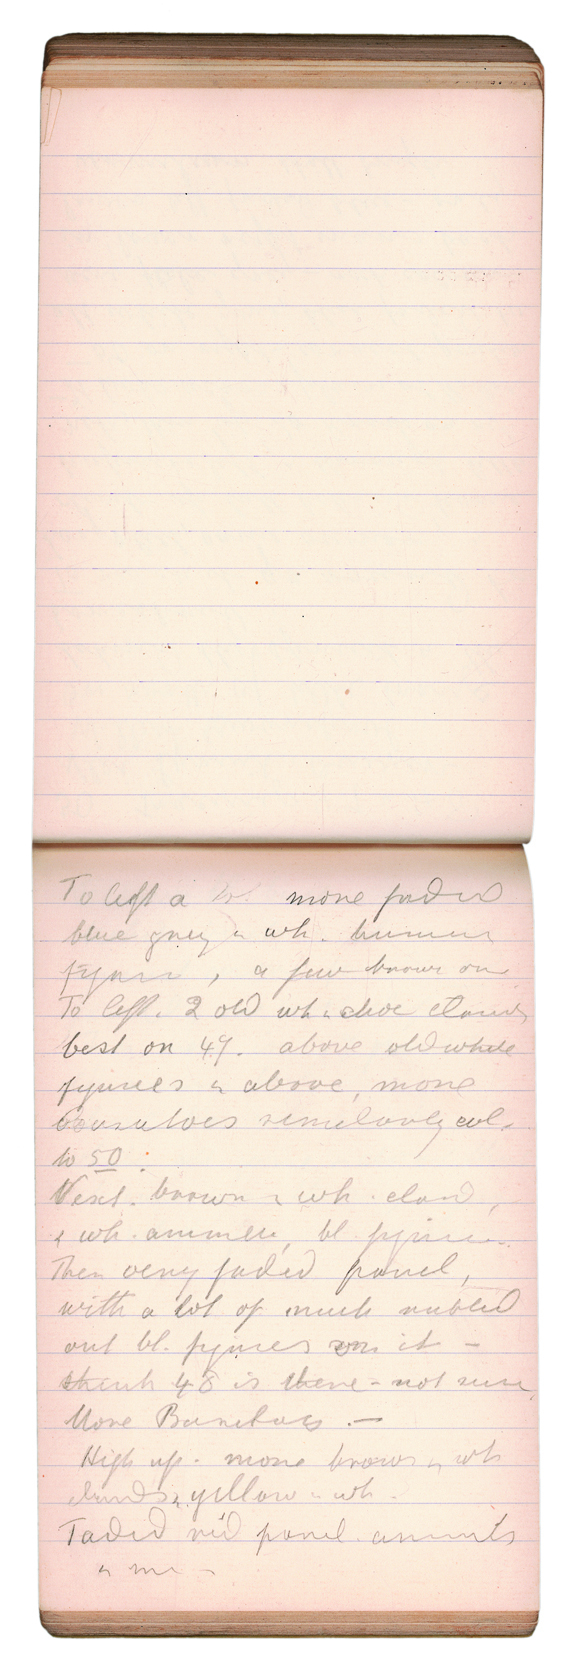 To left a more faded
blue grey & wh. human
figure, a few brown on
To left. 2 old wh. & choc eland
best on 49. above old white
figures & above, more
similarly col.
to 50.
Next. brown & wh. eland,
& wh. animal, bl. figure
Then very faded panel,
with a lot of much rubbed
out bl. figures on it –
think 48 is there – not sure,
More –
High up. more brown & wh
elands, yellow & wh.
Faded red panel. animals
& men –